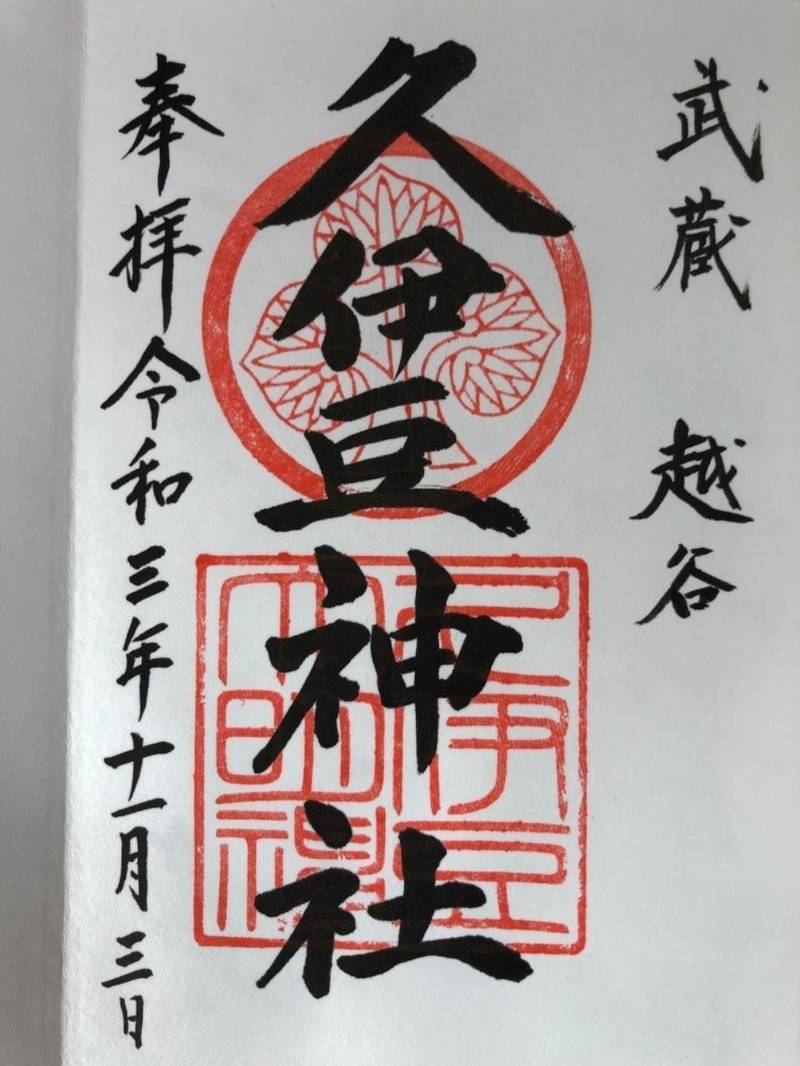 武蔵 越谷
久伊豆神社
奉拝令和三年十一月三日